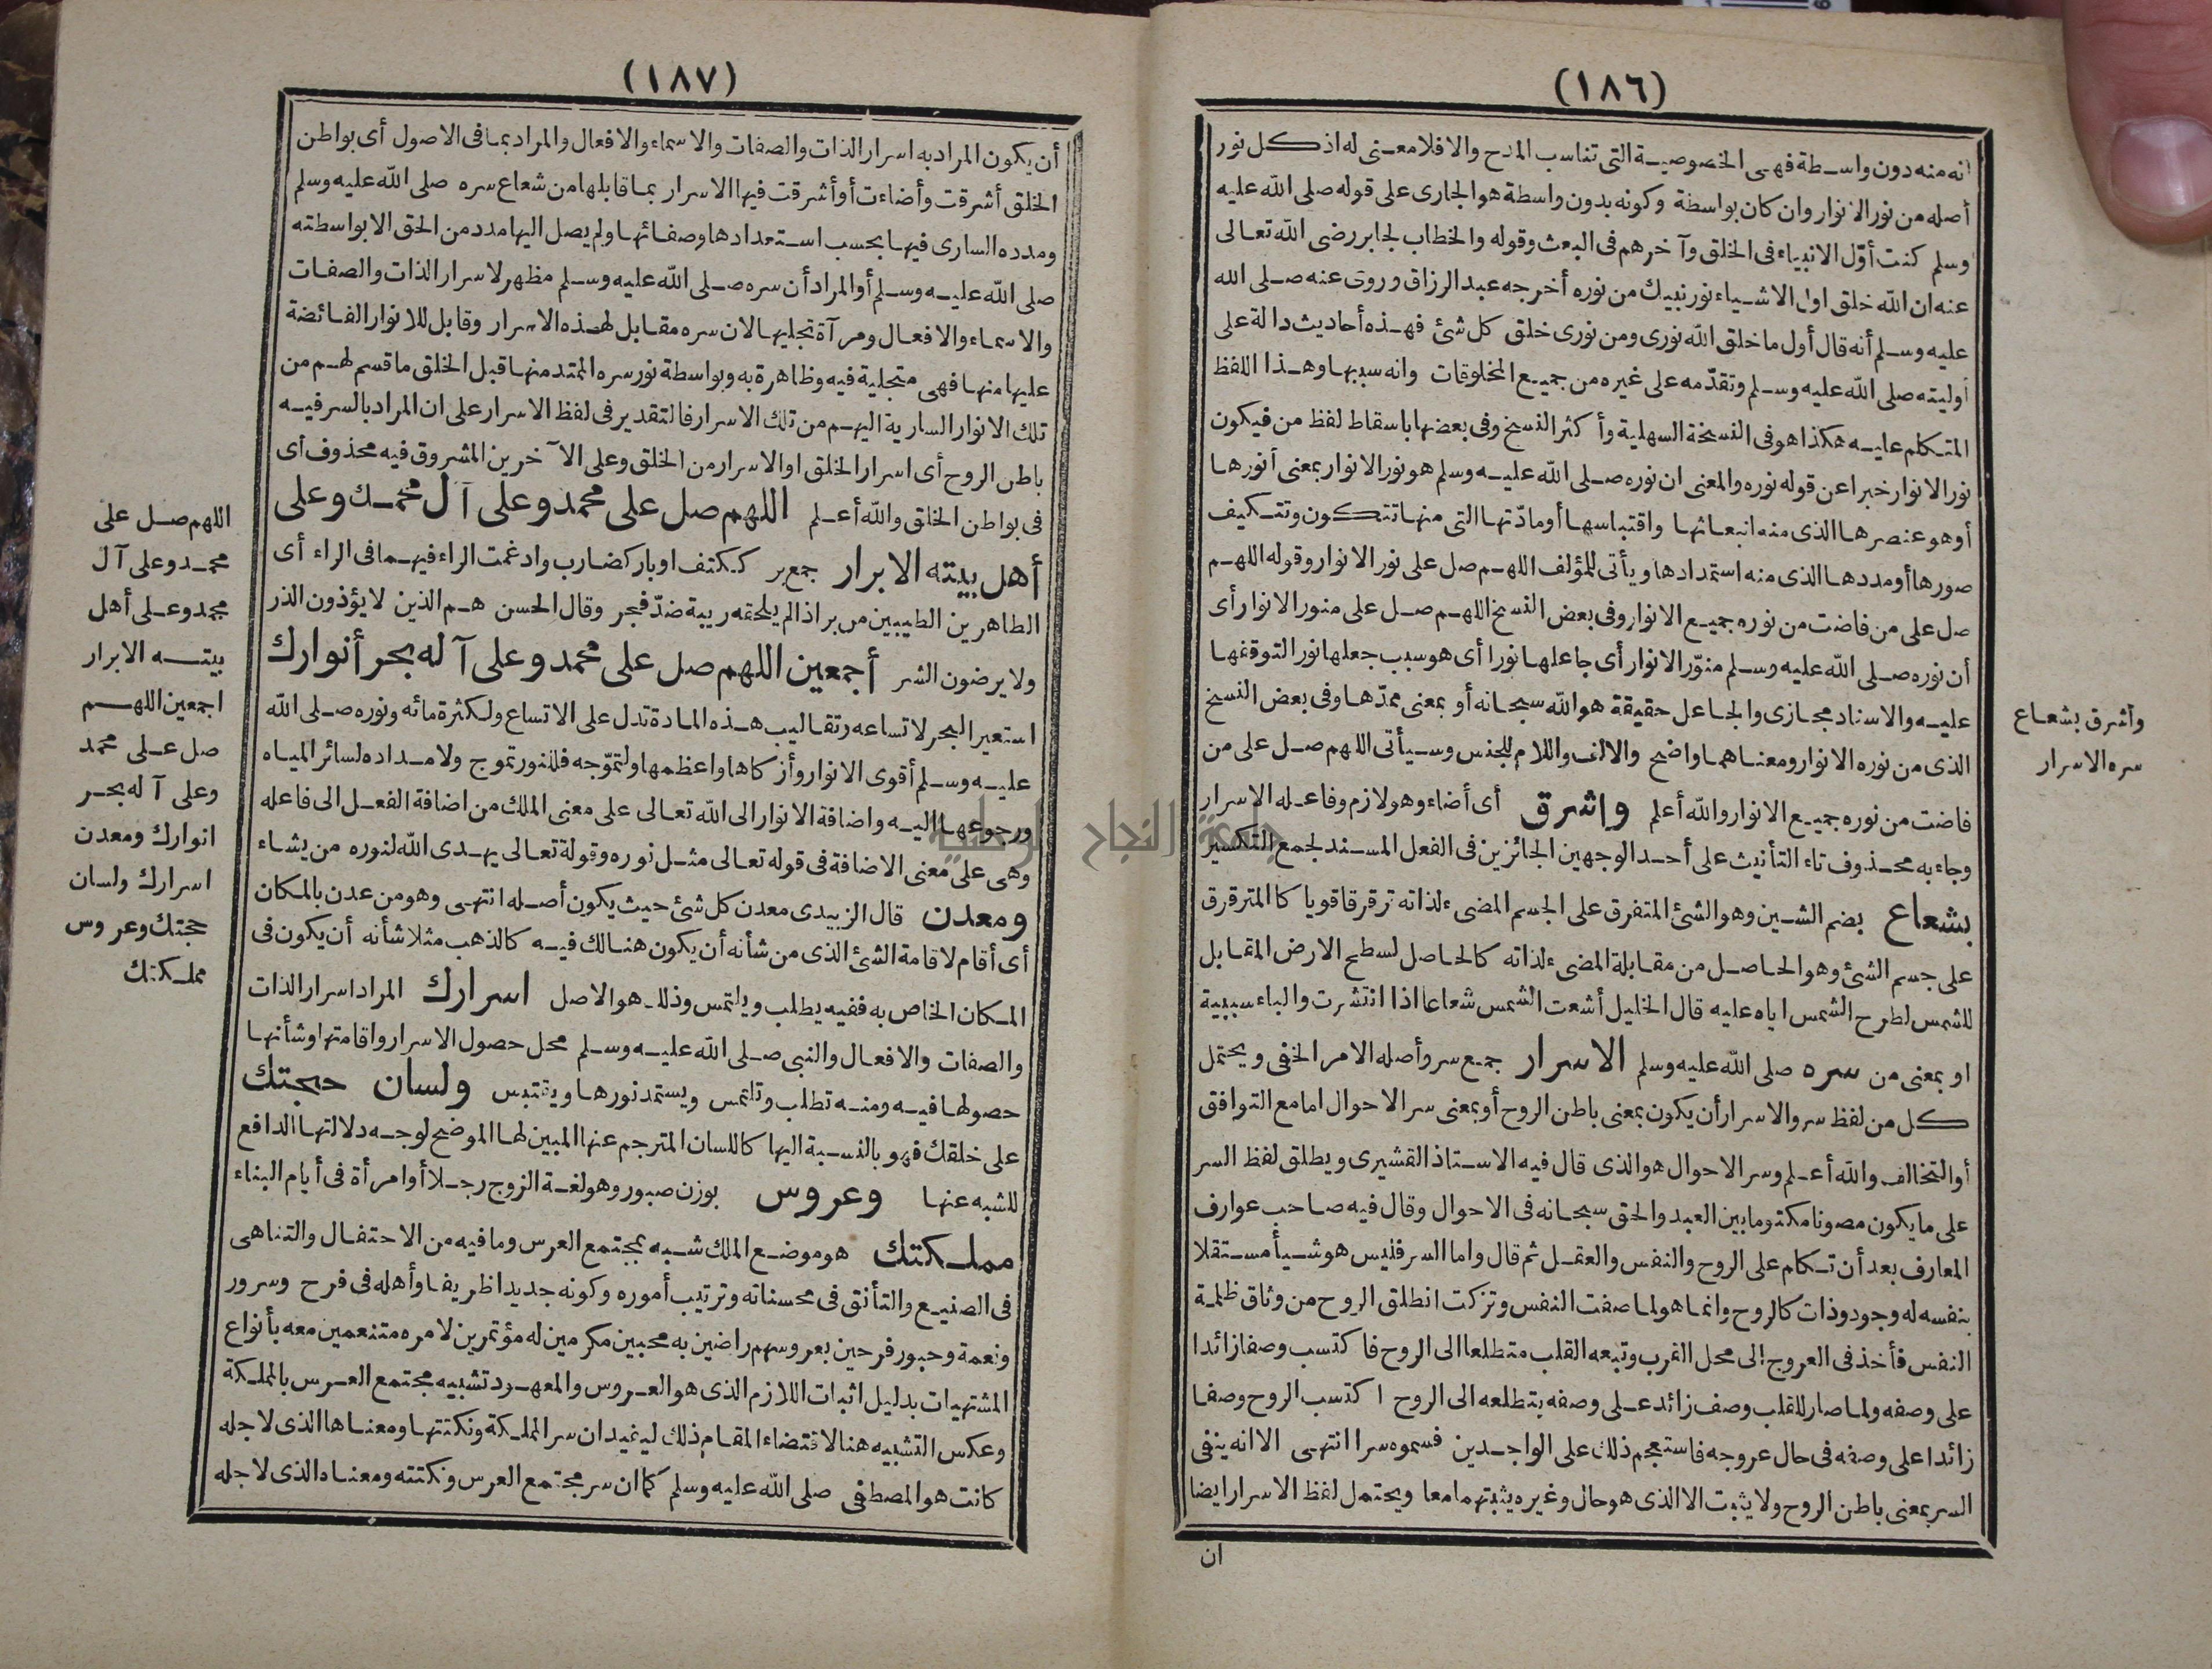 (١٨٦)
انه منه دون واسطة فهى الخصوصية التى تناسب المدح والا فلا معنى له اذ كل نور
أصله من نور الانوار وان كان بواسطة وكونه بدون واسطة هو الجارى على قوله صلى الله عليه
وسلم كنت أوّل الانبياء فى الخلق وآخرهم فى البعث وقوله والخطاب لجابر رضى الله تعالى
عنه ان الله خلق اول الاشياء نور نبيك من نوره أخرجه عبد الرزاق وروى عنه صلى الله
عليه وسلم أنه قال أول ما خلق الله نورى ومن نورى خلق كل شئ فهذه أحاديث دالة على
أوليته صلى الله عليه وسلم وتقدّمه على غيره من جميع المخلوقات وانه سببها وهذا اللفظ
المتكلم عليه هكذا هو فى النسخة السهلية وأكثر النسخ وفى بعضها باسقاط لفظ من فيكون
نور الانوار خبرا عن قوله نوره والمعنى ان نوره صلى الله عليه وسلم هو نور الانوار بمعنى أنورها
أو هو عنصرها الذى منه انبعاثها واقتباسها أو مادّتها التى منها تتكون وتتكيف
صورها أو مددها الذى منه استمدادها ويأتى للمؤلف اللهم صل على نور الانوار وقوله اللهم
صل على من فاضت من نوره جميع الانوار وفى بعض النسخ اللهم صل على منور الانوار أى
أن نوره صلى الله عليه وسلم منوّر الانوار أى جاعلها نورا أى هو سبب جعلها نور التوقفها
عليه والاسناد مجازى والجاعل حقيقة هو الله سبحانه أو بمعنى ممدّها وفى بعض النسخ
الذى من نوره الانوار ومعناهما واضح والالف واللام للجنس وسيأتى اللهم صل على من
فاضت من نوره جميع الانوار والله أعلم واشرق أى أضاء وهو لازم وفاعله الاسرار
وجاء به محذوف تاء التأنيث على أحد الوجهين الجائزين فى الفعل المسند لجمع التكسير
بشعاع بضم الشين وهو الشئ المتفرق على الجسم المضىء لذاته ترقرقا قويا كالمترقرق
على جسم الشئ وهو الحاصل من مقابلة المضىء لذاته كالحاصل لسطح الارض المقابل
للشمس لطرح الشمس اياه عليه قال الخليل أشعت الشمس شعاعا اذا انتشرت والباء سببية
او بمعنى من سره صلى الله عليه وسلم الاسرار جمع سر وأصله الامر الخفى ويحتمل
كل من لفظ سر والاسرار أن يكون بمعنى باطن الروح أو بمعنى سر الاحوال اما مع التوافق
أو التخالف والله أعلم وسر الاحوال هو الذى قال فيه الاستاذ القشيرى ويطلق لفظ السر
على ما يكون مصونا مكتوما بين العبد والحق سبحانه فى الاحوال وقال فيه صاحب عوارف
المعارف بعد أن تكلم على الروح والنفس والعقل ثم قال واما السر فليس هو شيأ مستقلا
بنفسه له وجود وذات كالروح وانما هو لما صفت النفس وتزكت انطلق الروح من وثاق ظلمة
النفس فأخذ فى العروج الى محل القرب وتبعه القلب متطلعا الى الروح فاكتسب وصفا زائدا
على وصفه ولما صار للقلب وصف زائد على وصفه بتطلعه الى الروح اكتسب الروح وصفا
زائدا على وصفه فى حال عروجه فاستعجم ذلك على الواجدين فسموه سرا انتهى الا انه ينفى
السر بمعنى باطن الروح ولا يثبت الا الذى هو حال وغيره يثبتهما معا ويحتمل لفظ الاسرار ايضا
ان
وأشرق بشعاع
سره الاسرار
(١٨٧)
أن يكون المراد به اسرار الذات والصفات والاسماء والافعال والمراد بما فى الاصول أى بواطن
الخلق أشرقت وأضاءت أو أشرقت فيها الاسرار بما قابلها من شعاع سره صلى الله عليه وسلم
ومدده السارى فيها بحسب استعدادها وصفائها ولم يصل اليها مدد من الحق الا بواسطته
صلى الله عليه وسلم أو المراد أن سره صلى الله عليه وسلم مظهر لاسرار الذات والصفات
والاسماء والافعال ومرآة تجليها لان سره مقابل لهذه الاسرار وقابل للانوار الفائضة
عليها منها فهى متجلية فيه وظاهرة به وبواسطة نور سره الممتد منها قبل الخلق ما قسم لهم من
تلك الانوار السارية اليهم من تلك الاسرار فالتقدير فى لفظ الاسرار على ان المراد بالسر فيه
باطن الروح أى اسرار الخلق او الاسرار من الخلق وعلى الآخرين المشروق فيه محذوف أى
فى بواطن الخلق والله أعلم اللهم صل على محمد وعلى آل محمد وعلى
أهل بيته الابرار جمع بر ككتف او بار كضارب وادغمت الراء فيهما فى الراء أى
الطاهرين الطيبين من بر اذا لم يلحقه ريبة ضدّ فجر وقال الحسن هم الذين لا يؤذون الذر
ولا يرضون الشر أجمعين اللهم صل على محمد وعلى آله بحر أنوارك
استعير البحر لاتساعه وتقاليب هذه المادة تدل على الاتساع ولكثرة مائه ونوره صلى الله
عليه وسلم أقوى الانوار وأزكاها واعظمها ولتموّجه فللنور تموج ولامداده لسائر المياه
ورجوعها اليه واضافة الانوار الى الله تعالى على معنى الملك من اضافة الفعل الى فاعله
وهى على معنى الاضافة فى قوله تعالى مثل نوره وقوله تعالى يهدى الله لنوره من يشاء
ومعدن قال الزبيدى معدن كل شئ حيث يكون أصله انتهى وهو من عدن بالمكان
أى أقام لاقامة الشئ الذى من شأنه أن يكون هنالك فيه كالذهب مثلا شأنه أن يكون فى
المكان الخاص به ففيه يطلب ويلتمس وذلك هو الاصل اسرارك المراد اسرار الذات
والصفات والافعال والنبى صلى الله عليه وسلم محل حصول الاسرار واقامتها وشأنها
حصولها فيه ومنه تطلب وتلتمس ويستمد نورها ويقتبس ولسان حجتك
على خلقك فهو بالنسبة اليها كاللسان المترجم عنها المبين لها الموضح لوجه دلالتها الدافع
للشبه عنها وعروس بوزن صبور وهو لغة الزوج رجلا أو امرأة فى أيام البناء
مملكتك هو موضع الملك شبه بمجتمع العرس وما فيه من الاحتفال والتناهى
فى الصنيع والتأنق فى محسناته وترتيب أموره وكونه جديدا ظريفا وأهله فى فرح وسرور
ونعمة وحبور فرحين بعروسهم راضين به محبين مكرمين له مؤتمرين لامره متنعمين معه بأنواع
المشتهيات بدليل اثبات اللازم الذى هو العروس والمعهود تشبيه مجتمع العرس بالمملكة
وعكس التشبيه هنا لاقتضاء المقام ذلك ليفيد ان سر المملكة ونكتتها ومعناها الذى لاجله
كانت هو المصطفى صلى الله عليه وسلم كما ان سر مجتمع العرس ونكتته ومعناه الذى لاجله
اللهم صل على
محمد وعلى آل
محمد وعلى أهل
بيته الابرار
اجمعين اللهم
صل على محمد
وعلى آله بحر
انوارك ومعدن
اسرارك ولسان
حجتك وعروس
مملكتك
جامعة النجاح